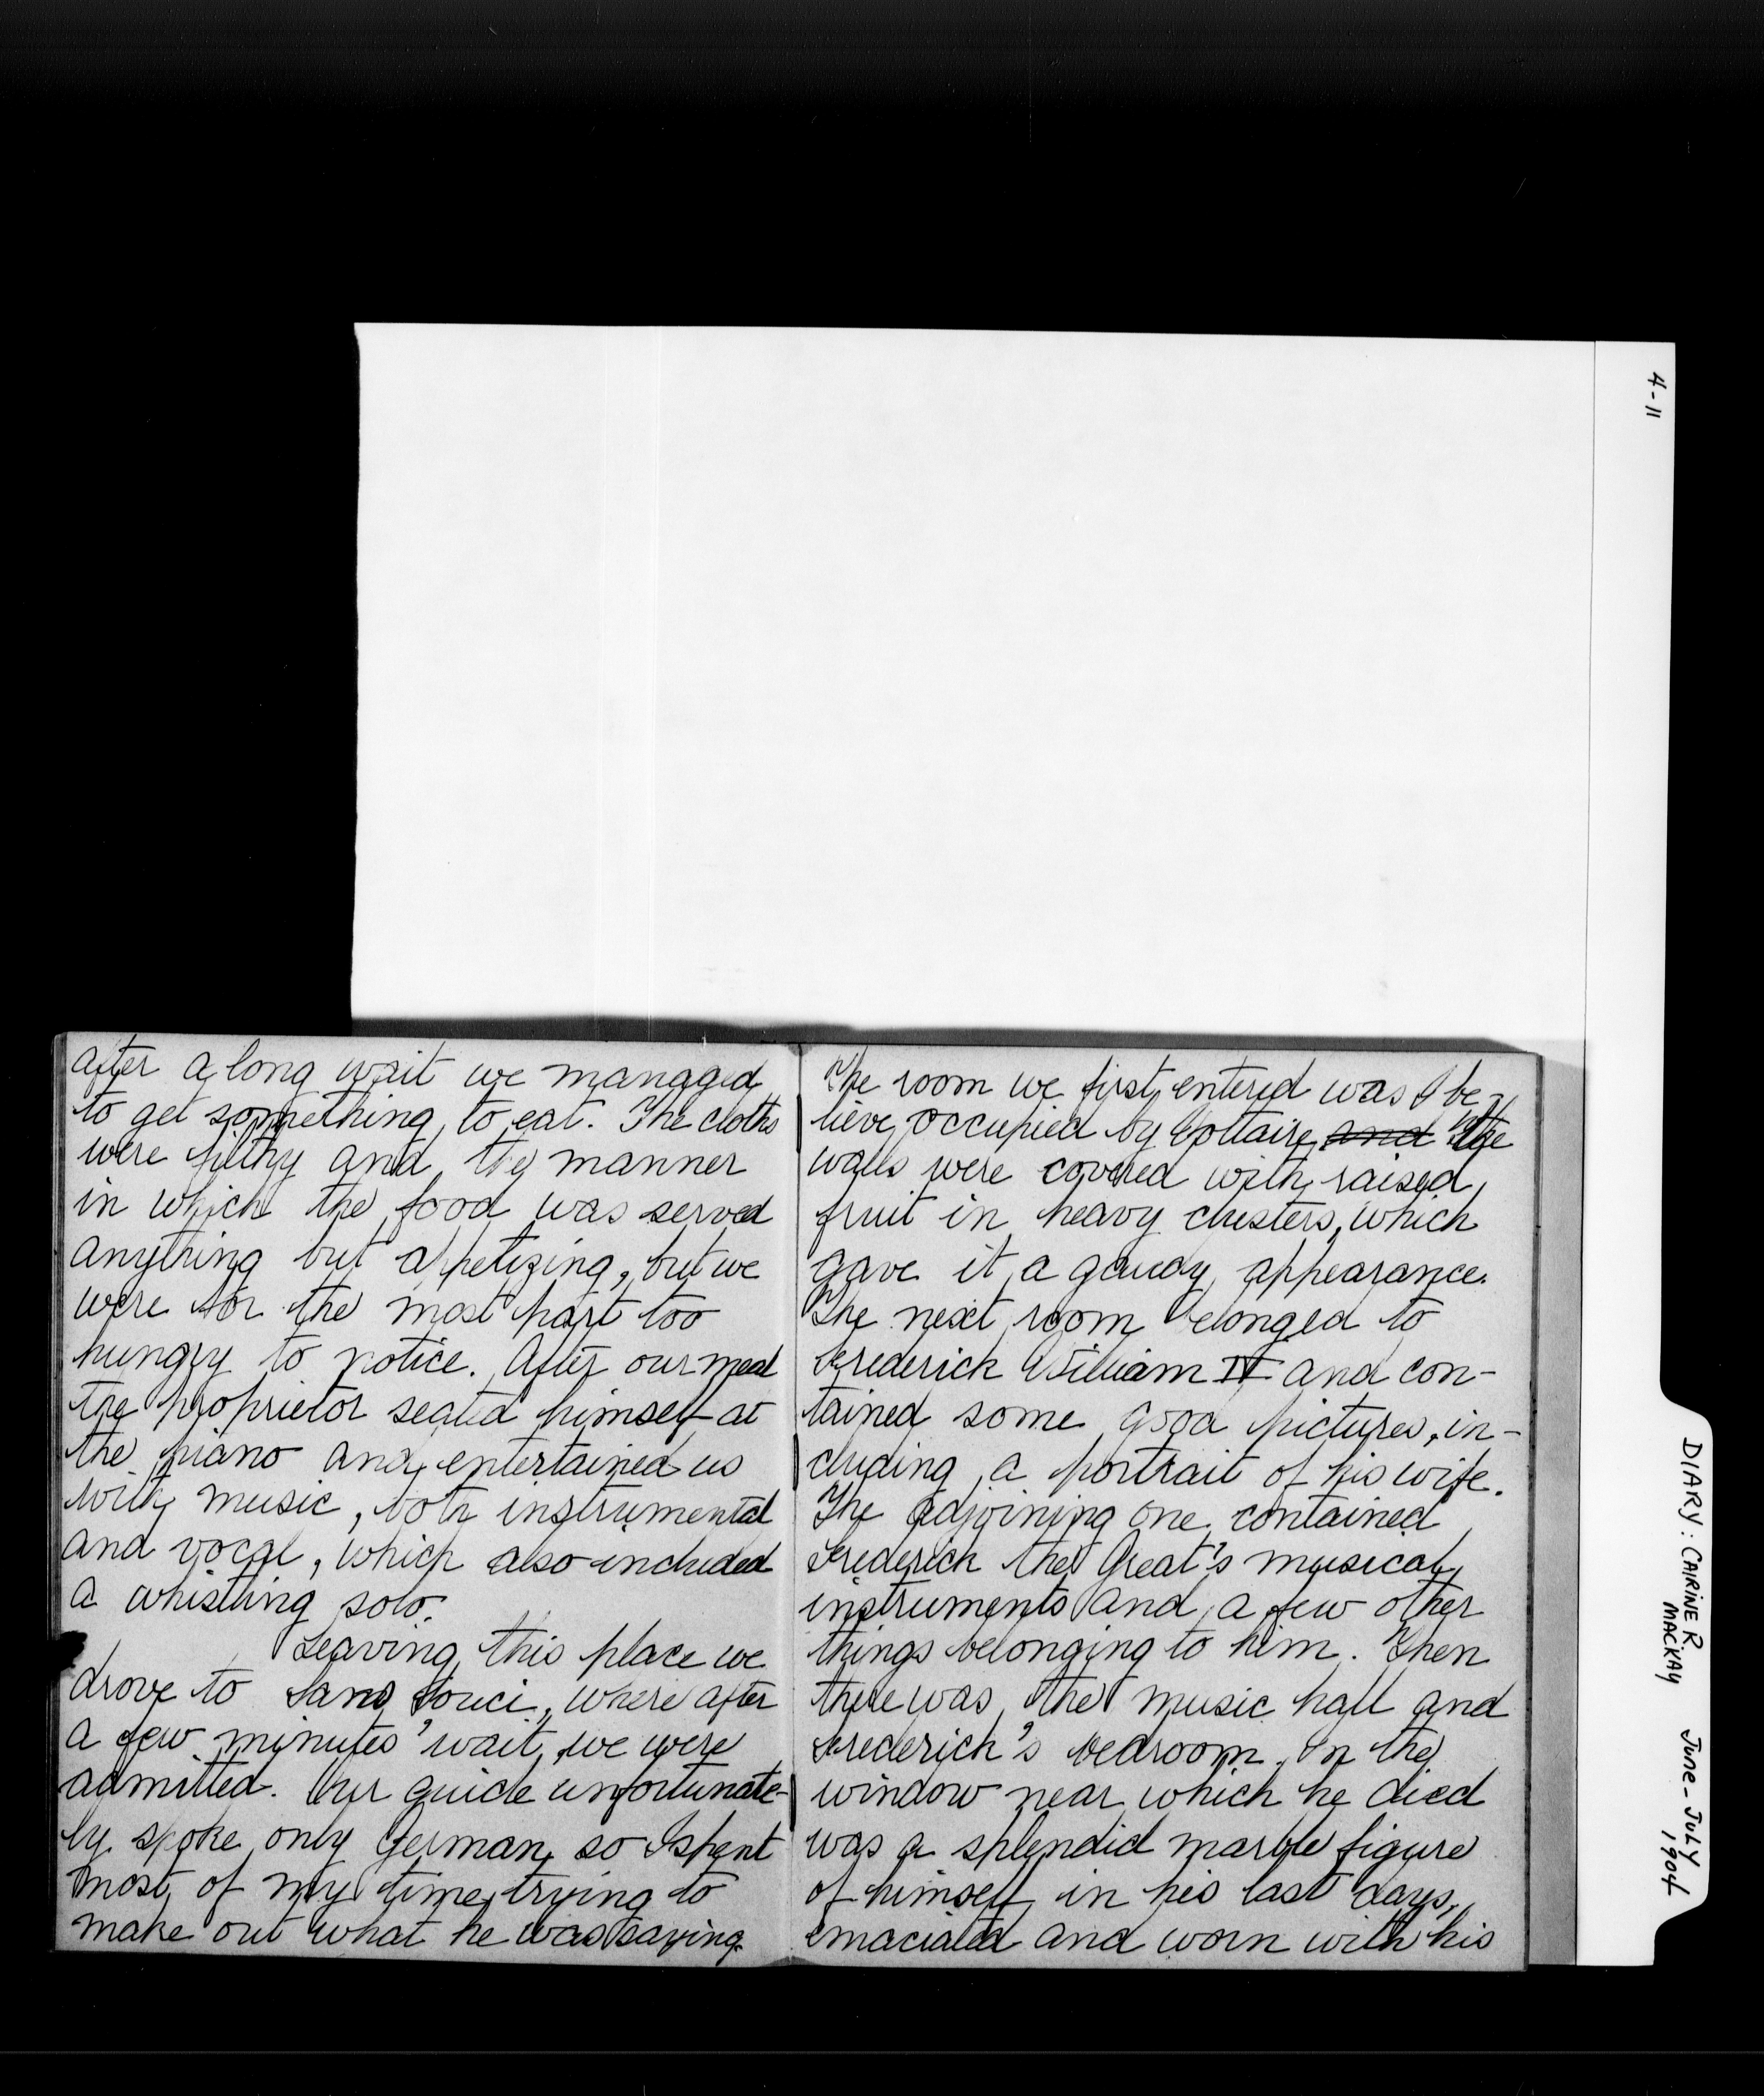 after a long wait we managed
to get something to eat. The cloths
were filthy and the manner
in which the food was served
anything but appetizing, but we
were for the most part too
hungry to notice. After our meal
the proprietor seated himself at
the piano and entertained us
with music, both instrumental
and vocal, which also included
a whistling solo.
Leaving this place we
drove to Sans Souci, where after
a few minutes' wait, we were
admitted. Our guide unfortunate-
ly spoke only German so I spent
most of my time trying to
make out what he was saying.
The room we first entered was I be-
lieve occupied by Voltaire and The
walls were covered with raised
fruit in heavy clusters, which
gave it a gaudy appearance.
The next room belonged to
Frederick William IV and con-
tained some good pictures, in-
cluding a portrait of his wife.
The adjoining one contained
Frederick the Great's musical
instruments and a few other
things belonging to him. Then
there was the music hall and
Frederick's bedroom. In the
window near which he died
was a splendid marble figure
of himself in his last days,
emaciated and worn with his
4-11
DIARY: CAIRINE R.
MACKAY
June - July
1904